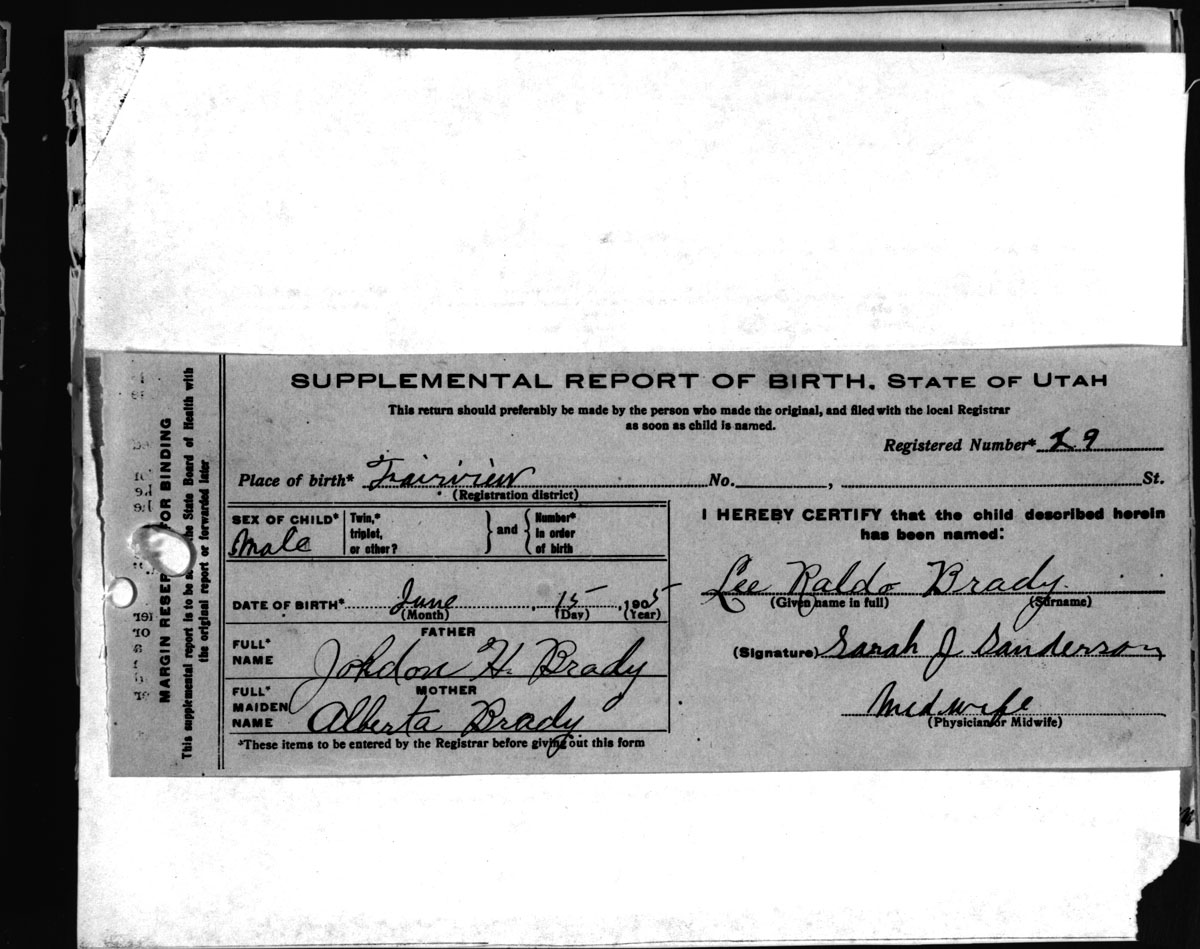 SUPPLEMENTAL REPORT OF BIRTH. STATE OF UTAH
This return should preferably be made by the person who made the original, and filed with the local Registrar
as soon as child is named.
Registered Number* 29
Place of birth* Fairview No. , St.
(Registration district)
SEX OF CHILD* Male
Twin,* triplet, or other? } and { Number* in order of birth
DATE OF BIRTH* June 15, 1905
(Month) (Day) (Year)
FATHER
FULL* NAME Johdon H. Brady
MOTHER
FULL* MAIDEN NAME Alberta Brady
*These items to be entered by the Registrar before giving out this form
I HEREBY CERTIFY that the child described herein
has been named:
Lee Raldo Brady
(Given name in full) (Surname)
(Signature) Sarah J Sanderson
Midwife
(Physician or Midwife)
MARGIN RESER FOR BINDING
This supplemental report is to be se the State Board of Health with
the original report or forwarded later